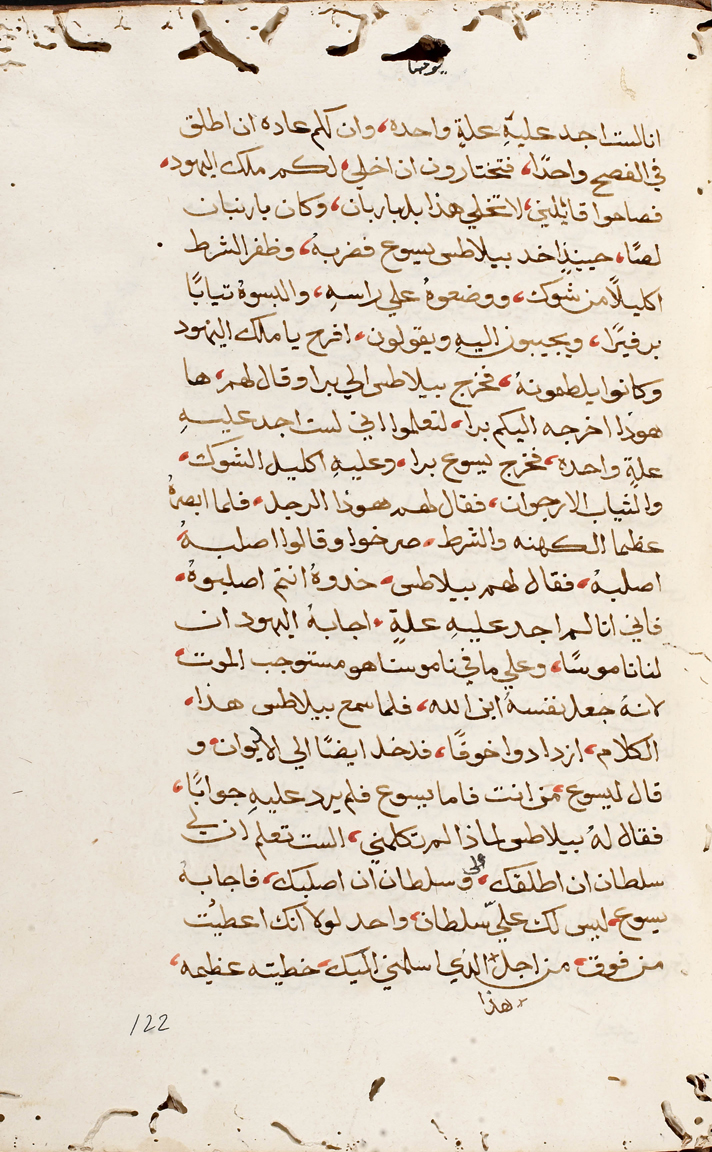 يوحنا
انا لست اجد عليهِ علةٍ واحده، وان لكم عاده ان اطلق
في الفصح واحدًا، فتختارون ان اخلي، لكم ملك اليهود،
فصاحوا قائيلين، لا تخلي هذا بل باربان، وكان باربنان
لصًا، حينيذٍ اخد بيلاطس يسوع فضربهُ، وظفر الشرط
اكليلًا من شوك، ووضعوهُ علي راسهِ، والبسوهُ تيابًا
برفيرًا، ويجيبون اليهِ ويقولون، افرح يا ملك اليهود
وكانوا يلطمونهُ، فخرج بيلاطس الي برا وقال لهم، ها
هوذا اخرجه اليكم برا، لتعلموا اني لست اجد عليهِ
علةٍ واحده، فخرج يسوع برا، وعليهِ اكليل الشوك،
والثياب الارجوان، فقال لهم هوذا الرجل، فلما ابصرهُ
عظما الكهنه والشرط، صرخوا وقالوا اصلبهُ
اصلبهُ، فقال لهم بيلاطس، خدوهُ انتم اصلبوهُ،
فاني انا لم اجد عليهِ علةٍ، اجابهُ اليهود ان
لنا ناموسًا، وعلي ما في ناموسنا هو مستوجب الموت،
لانهُ جعل نفسهُ ابن الله، فلما سمع بيلاطس هذا،
الكلام، ازداد دوا خوفًا، فدخل ايضًا الي الايوان، و
قال ليسوع، من انت فاما يسوع فلم يرد عليهِ جوابًا،
فقال لهُ بيلاطس لماذا لم تكلمني، الست تعلم ان لي
سلطان ان اطلقك، ولي سلطان ان اصلبك، فاجابهُ
يسوع، ليس لك عليّ سلطان، واحد لولا انك اعطيت
من فوق، من اجل الذي اسلمني اليك، خطيته عظيمه،
هذا
122